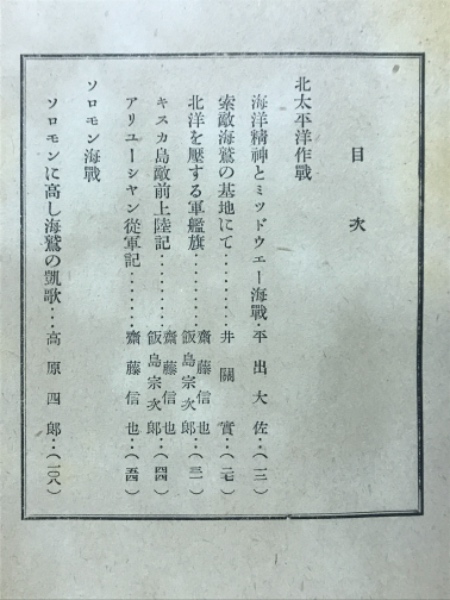 目次
北太平洋作戰
海洋精神とミツドウエー海戰‥平出大佐‥(一三)
索敵海鷲の基地にて‥‥‥‥‥井關實‥(二七)
北洋を壓する軍艦旗‥‥‥‥‥齋藤信也 飯島宗次郎‥(三一)
キスカ島敵前上陸記‥‥‥‥‥齋藤信也 飯島宗次郎‥(四四)
アリユーシヤン從軍記‥‥‥‥齋藤信也‥(五四)
ソロモン海戰
ソロモンに高し海鷲の凱歌‥‥高原四郎‥(一〇八)